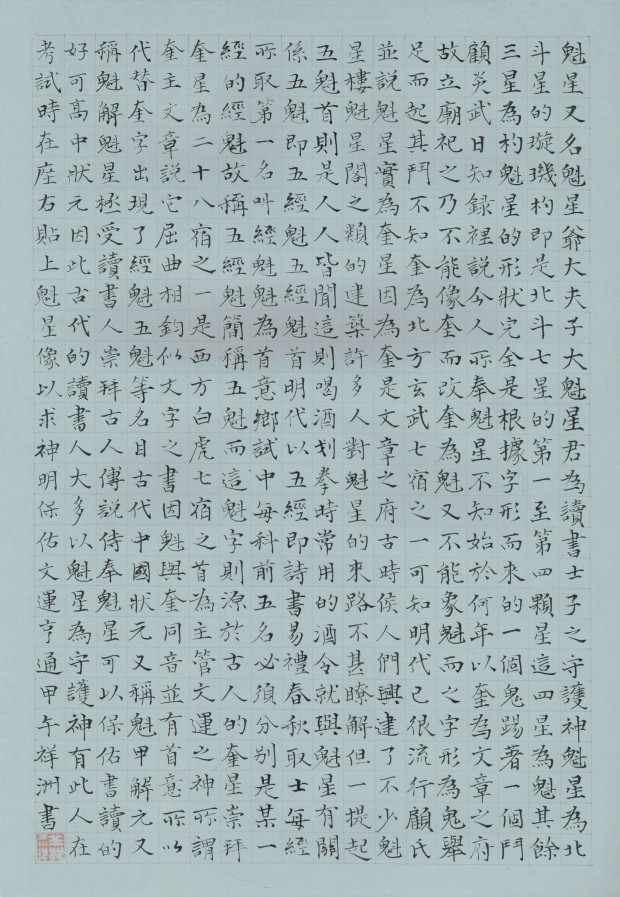 魁星又名魁星爺大夫子大魁星君為讀書士子之守護神魁星為北
斗星的璇璣杓即是北斗七星的第一至第四顆星這四星為魁其餘
三星為杓魁星的形狀完全是根據字形而來的一個鬼踢著一個鬥
顧炎武日知録裡說今人所奉魁星不知始於何年以奎為文章之府
故立廟祀之乃不能像奎而改奎為魁又不能象魁而之字形為鬼舉
足而起其鬥不知奎為北方玄武七宿之一可知明代已很流行顧氏
並説魁星實為奎星因為奎是文章之府古時侯人們興建了不少魁
星樓魁星閣之類的建築許多人對魁星的來路不甚瞭解但一提起
五魁首則是人人皆聞這則喝酒划拳時常用的酒令就與魁星有關
係五魁即五經魁五經魁首明代以五經即詩書易禮春秋取士每經
所取第一名叫經魁魁為首意鄉試中每科前五名必須分別是某一
經的經魁故稱五經魁簡稱五魁而這魁字則源於古人的奎星崇拜
奎星為二十八宿之一是西方白虎七宿之首為主管文運之神所謂
奎主文章説它屈曲相鈎似文字之書因魁與奎同音並有首意所以
代替奎字出現了經魁五魁等名目古代中國狀元又稱魁甲解元又
稱魁解魁星極受讀書人崇拜古人傳説侍奉魁星可以保佑書讀的
好可高中狀元因此古代的讀書人大多以魁星為守護神有此人在
考試時在座右貼上魁星像以求神明保佑文運亨通甲午祥洲書